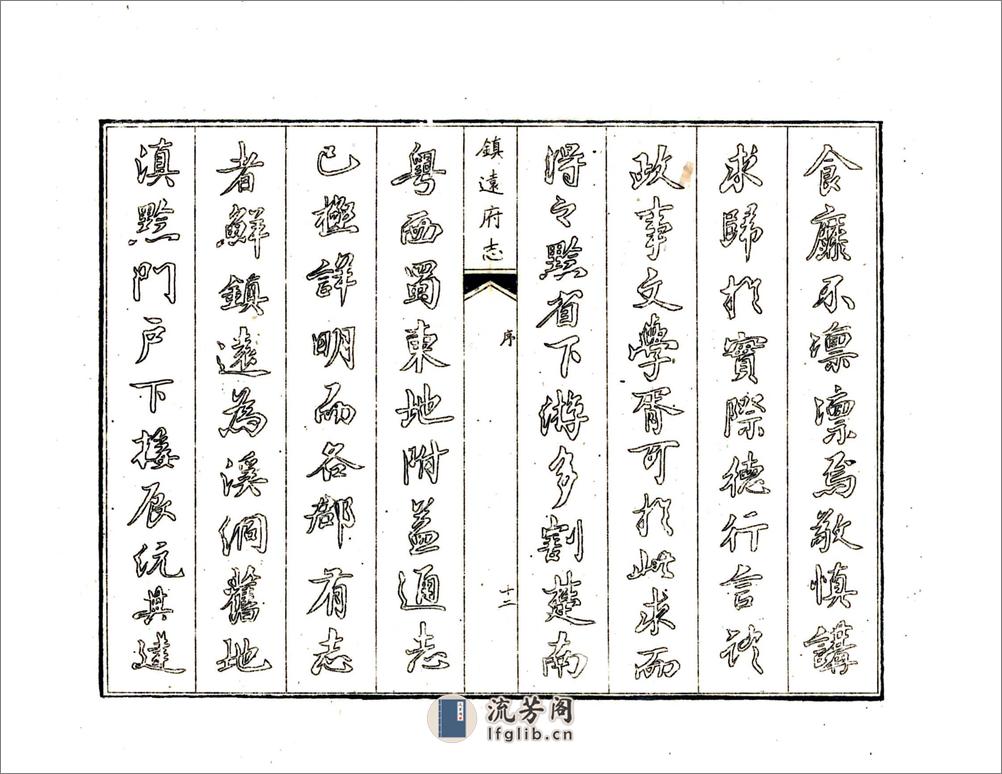 食靡不凜凜焉敬慎講
求歸於實際德行言詞
政事文學胥可於此求而
得之黔省下游多割楚南
鎮遠府志
序
十二
粤西蜀東地附益通志
已極詳明而各郡有志
者鮮鎮遠為溪洞舊地
滇黔門户下接辰沅其達
流芳阁
lfglib.cn